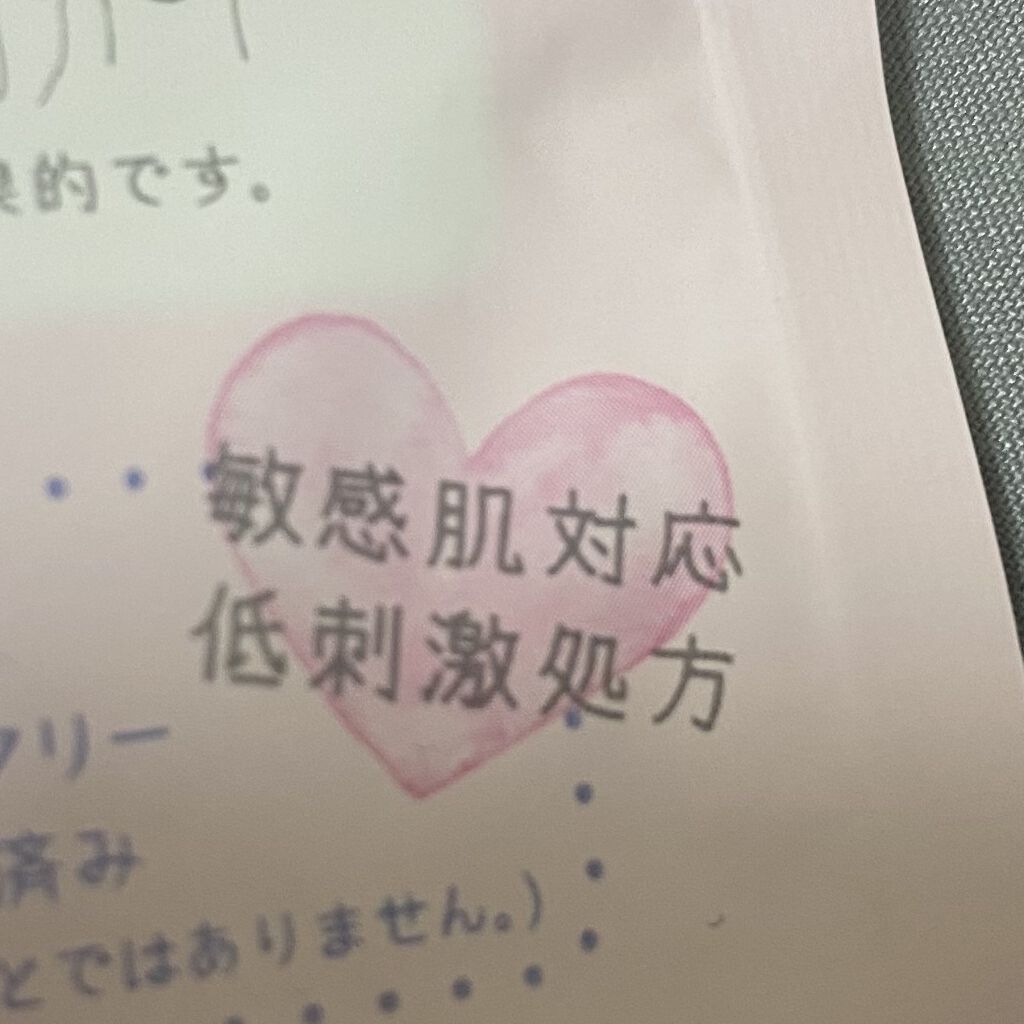 的です。
敏感肌対応
低刺激処方
フリー
済み
とではありません。)